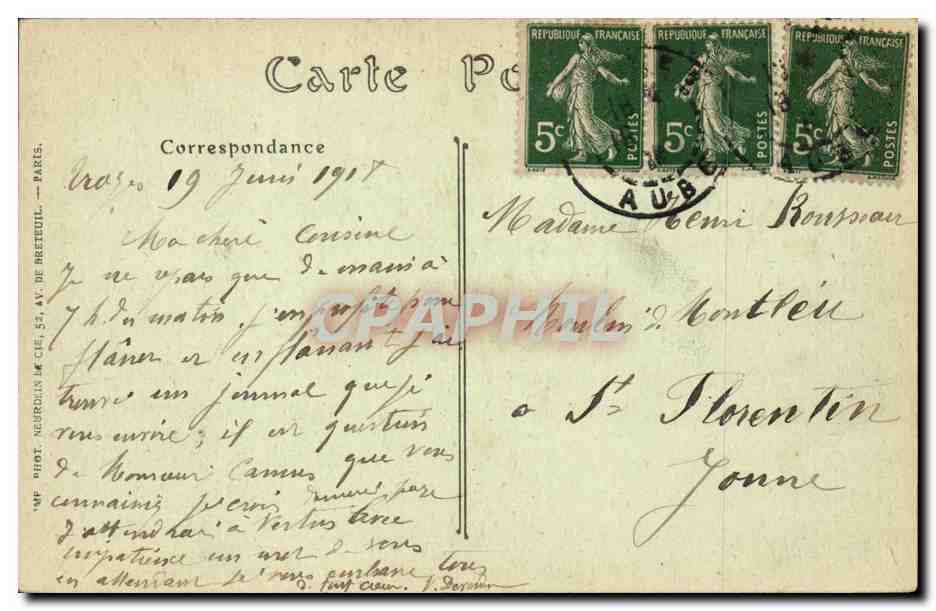 Carte Po
REPUBLIQUE FRANÇAISE
5c
POSTES
REPUBLIQUE FRANÇAISE
5c
POSTES
REPUBLIQUE FRANÇAISE
5c
POSTES
AUBE
Correspondance
19 Juin 191
Ma chère Cousine
Je ne pars que demain à
7 h. du matin, j'en profite pour
flâner et en flânant j'ai
trouvé un journal que je
vous envoie; il est question
de Monsieur Camus que vous
connaissiez je crois
J'attendrai à Vertus avec
impatience un mot de vous
en attendant je vous embrasse tous
de tout cœur. V.
Madame Henri Rousseau
Moulin de Montléu
à St Florentin
Yonne
IMP. PHOT. NEURDEIN ET CIE, 52, AV. DE BRETEUIL. — PARIS.
CPAPHIL